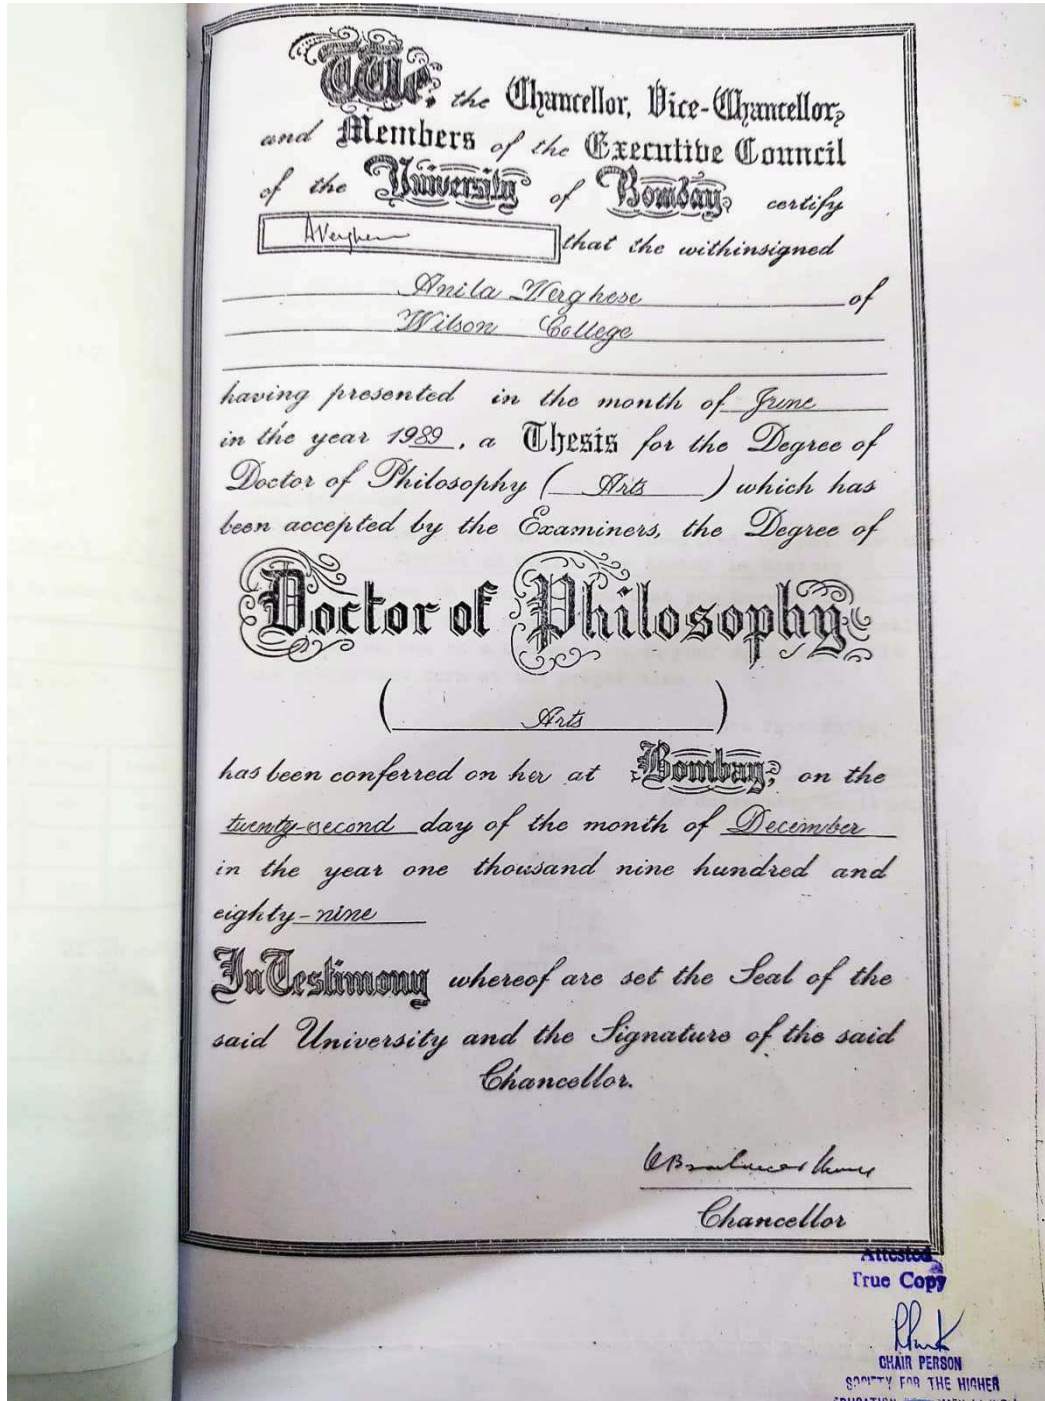 We, the Chancellor, Vice-Chancellor,
and Members of the Executive Council
of the University of Bombay, certify
AVerghese
that the withinsigned
Anila Verghese of
Wilson College
having presented in the month of June
in the year 1989, a Thesis for the Degree of
Doctor of Philosophy ( Arts ) which has
been accepted by the Examiners, the Degree of
Doctor of Philosophy
( Arts )
has been conferred on her at Bombay, on the
twenty-second day of the month of December
in the year one thousand nine hundred and
eighty-nine
In Testimony whereof are set the Seal of the
said University and the Signature of the said
Chancellor.
Chancellor
Attested
True Copy
CHAIR PERSON
SOCIETY FOR THE HIGHER